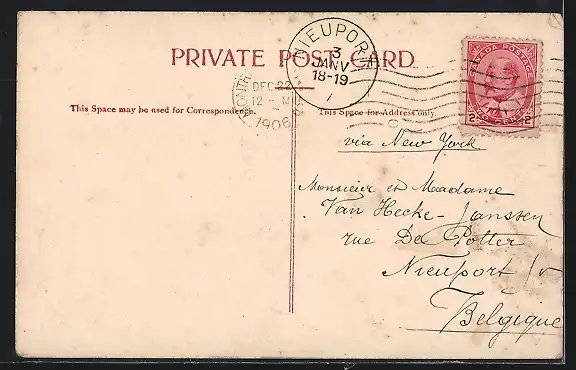 PRIVATE POST CARD
NIEUPORT
3
JANV
18-19
DEC 22
12 - M
1906
CANADA POSTAGE
2 CENTS 2
This Space may be used for Correspondence.
This Space for Address only.
via New York
Monsieur et Maadame
Van Hecke-Janssen
rue De Potter
Nieuport /
Belgique